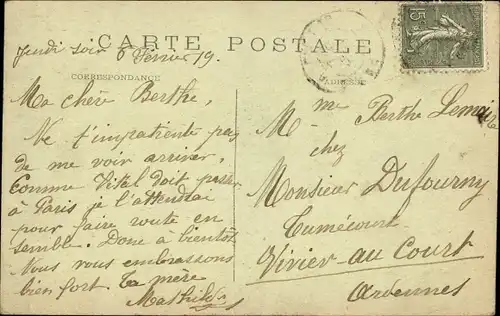 CARTE POSTALE
Jeudi soir 6 février 19.
CORRESPONDANCE
ADRESSE
15
Ma chère Berthe,
Ne t'impatiente pas
de me voir arriver,
Comme Vital doit passer
à Paris je l'attendrai
pour faire route en
semble. Donc à bientôt
Nous vous embrassons
bien fort. Ta mère
Mathilde
Mme Berthe Lemaire
chez
Monsieur Dufourny
Vivier-au Court
Ardennes